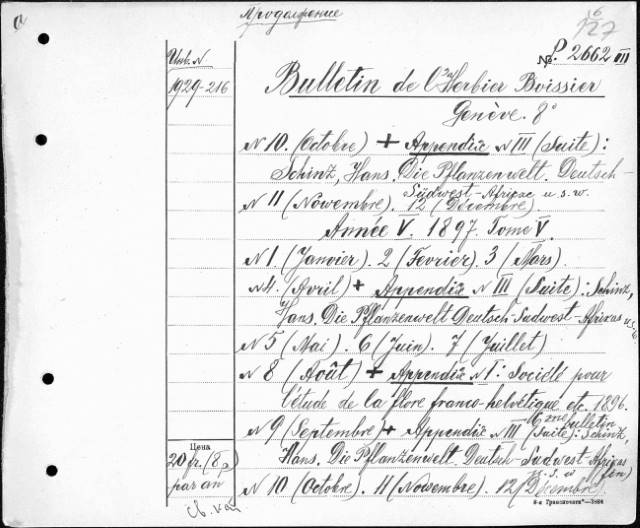 a
Продолжение
6
127
№ P. 2662 III
Инв. N
1929-216
Bulletin de l'Herbier Boissier
Genève. 8°
N 10. (Octobre) + Appendix N III (Suite):
Schinz, Hans. Die Pflanzenwelt. Deutsch-
Südwest-Afrikas u. s. w.
N 11 (Novembre). 12 (Décembre).
Année V. 1897. Tome V.
N 1. (Janvier). 2 (Février). 3 (Mars).
N 4. (Avril) + Appendix N III (Suite): Schinz,
Hans. Die Pflanzenwelt Deutsch-Südwest-Afrikas u. s. w.
N 5 (Mai). 6 (Juin). 7 (Juillet)
N 8 (Août) + Appendix N 1: Société pour
l'étude de la flore franco-helvétique etc. 1896.
6me bulletin
N 9 (Septembre) + Appendix N III (Suite): Schinz,
Hans. Die Pflanzenwelt. Deutsch-Südwest Afrikas
u. s. w. (fin)
N 10 (Octobre). 11 (Novembre). 12 (Décembre)
Цена
20 fr. (8
par an
Св. кат